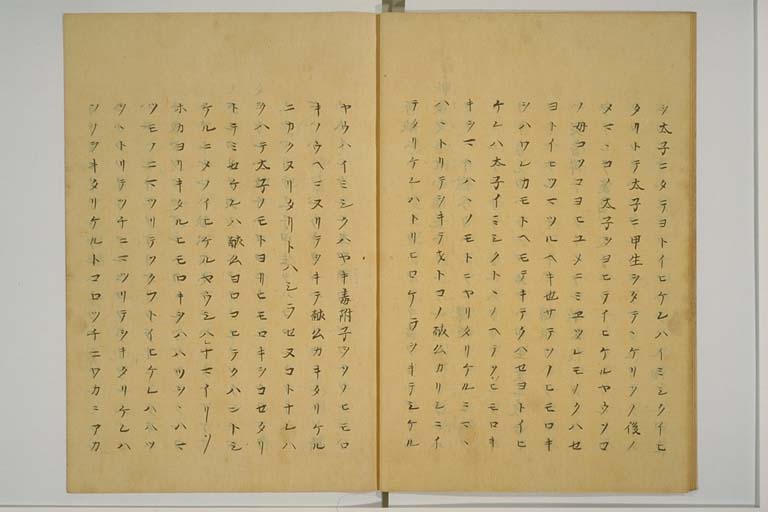 シ太子ニタテヨトイヒケレハイミシクイヒ
タリトテ太子ニ申生シタテヽケリソノ後ノ
タマヽコノ太子ヲヨヒテイヒケルヤウソコ
ノ母コソコヨヒユメニミヱツレモノクハセ
ヨトイヒツマツルヘキ也サテソノヒモロキ
シハワレカモトヘモテキテクハセヨトイヒ
ケレハ太子イミシクトヽノヘテヒモロキ
キシマヽハヽノモトニヤリタリケルニマヽ
ハヽトリテシキテオトコノ献公カリシニイ
テタリケレハトリヒロケテラシキテミケル
ヤウハイミシクハヤキ毒附子シソノヒモロ
キノウヘニヌリテヲキテ献公カキタリケル
ニカクヌリタリトハシラセヌコトナレハ
シハテ太子ノモトヨリヒモロキシコセタリ
トテミセケレハ献公ヨロコヒテクハントシ
ケルニメノイヒケルヤウシハナマイリソ
ホカヨリキタルヒモロキシハハツシヽハマ
ツモノニマツリテクフトイヒケレハハツ
ツヽトリテツチニマツリテシキタリケレハ
ソノヲキタリケルトコロツチニワカニアカ